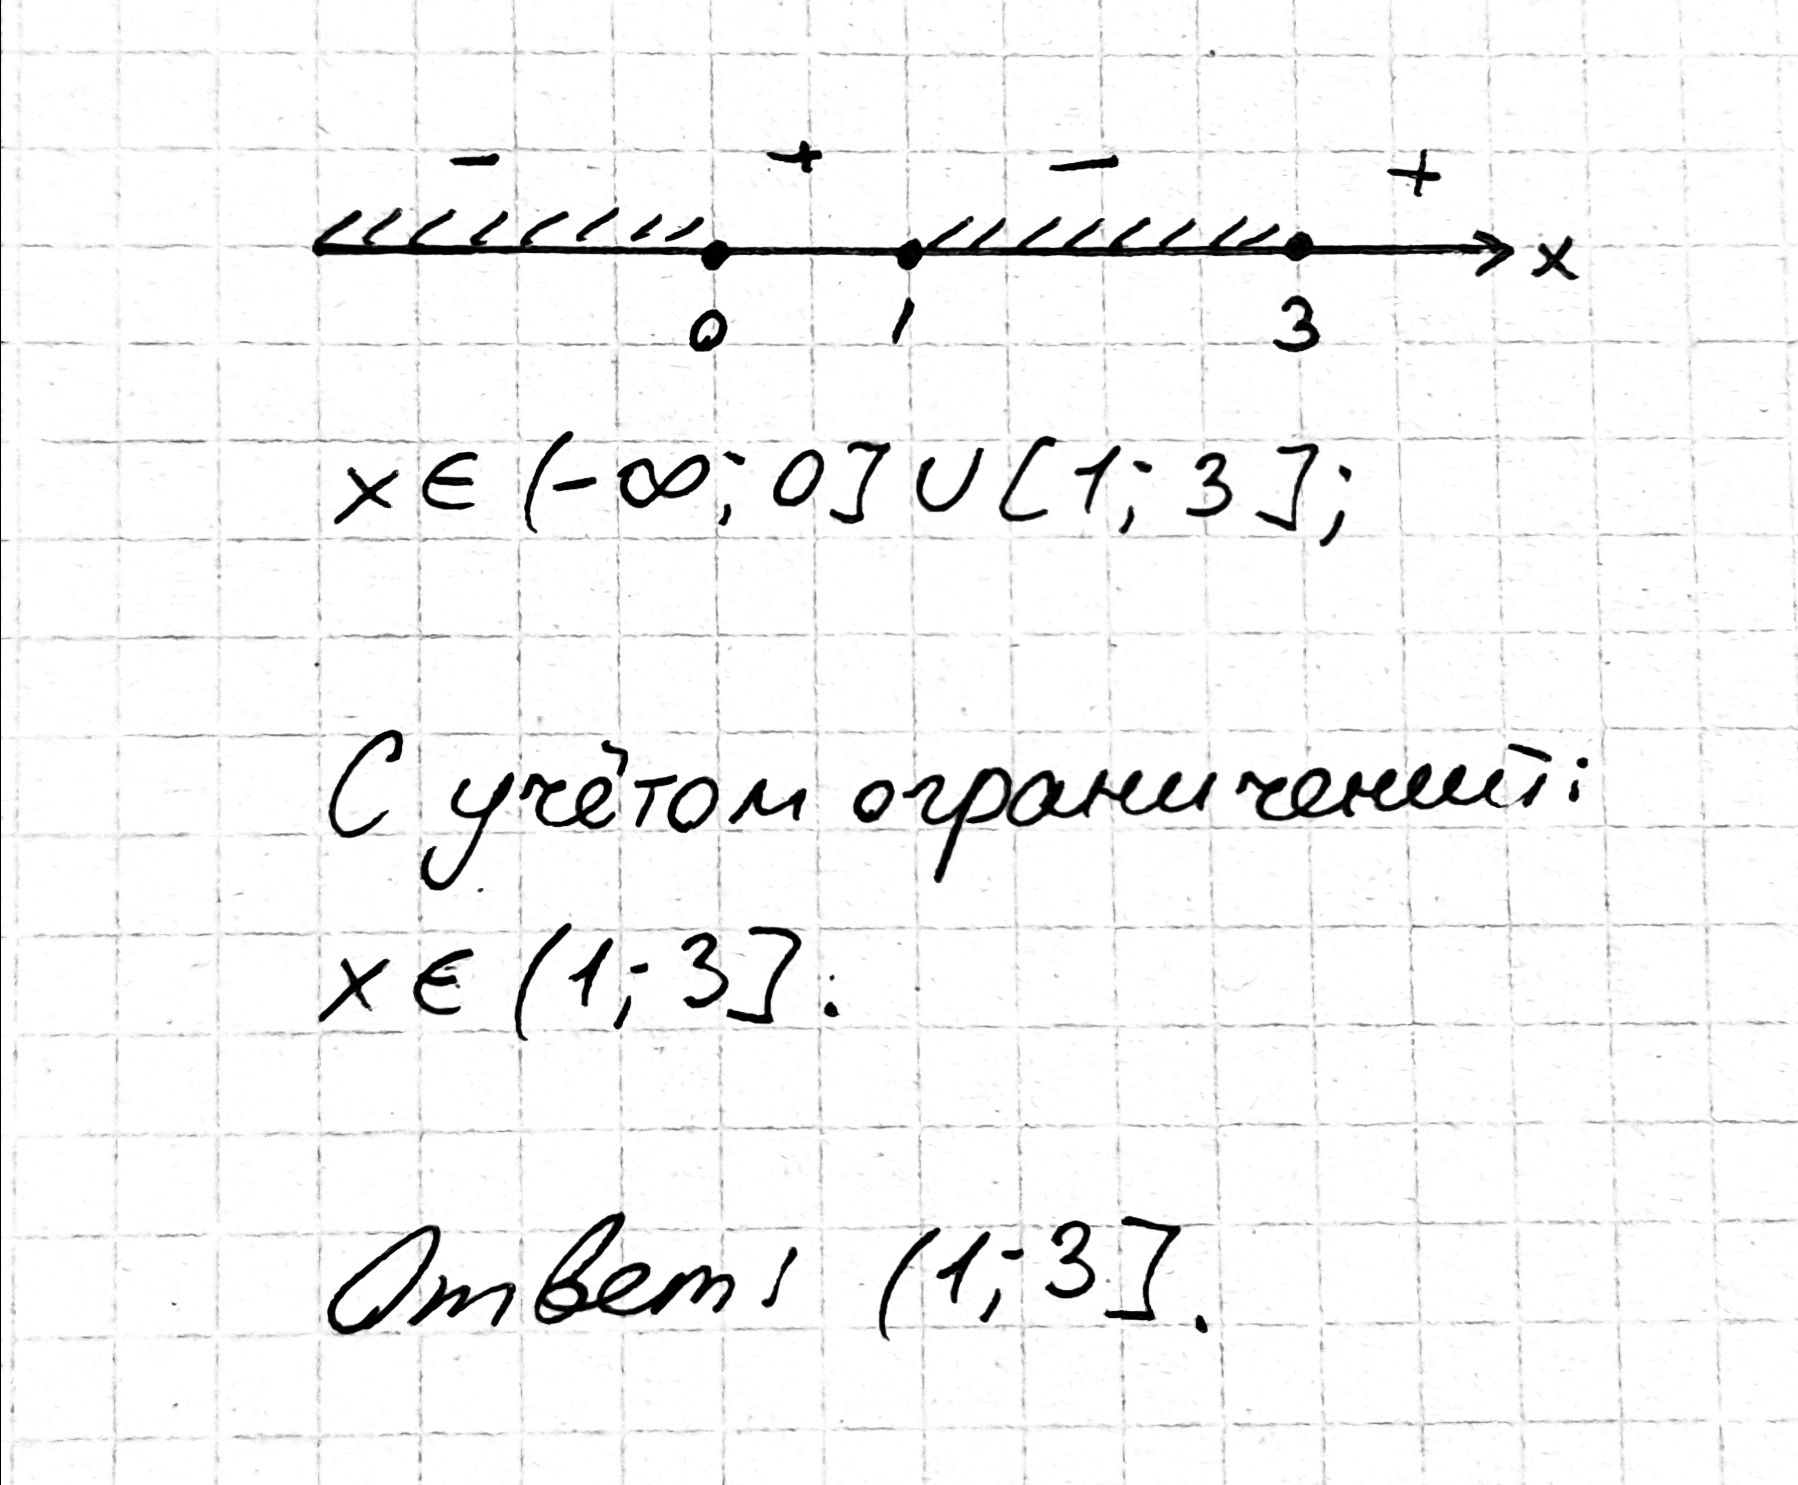 - + - +
x
0 1 3
x ∈ (-∞; 0] ∪ [1; 3];
С учётом ограничений:
x ∈ (1; 3].
Ответ: (1; 3].